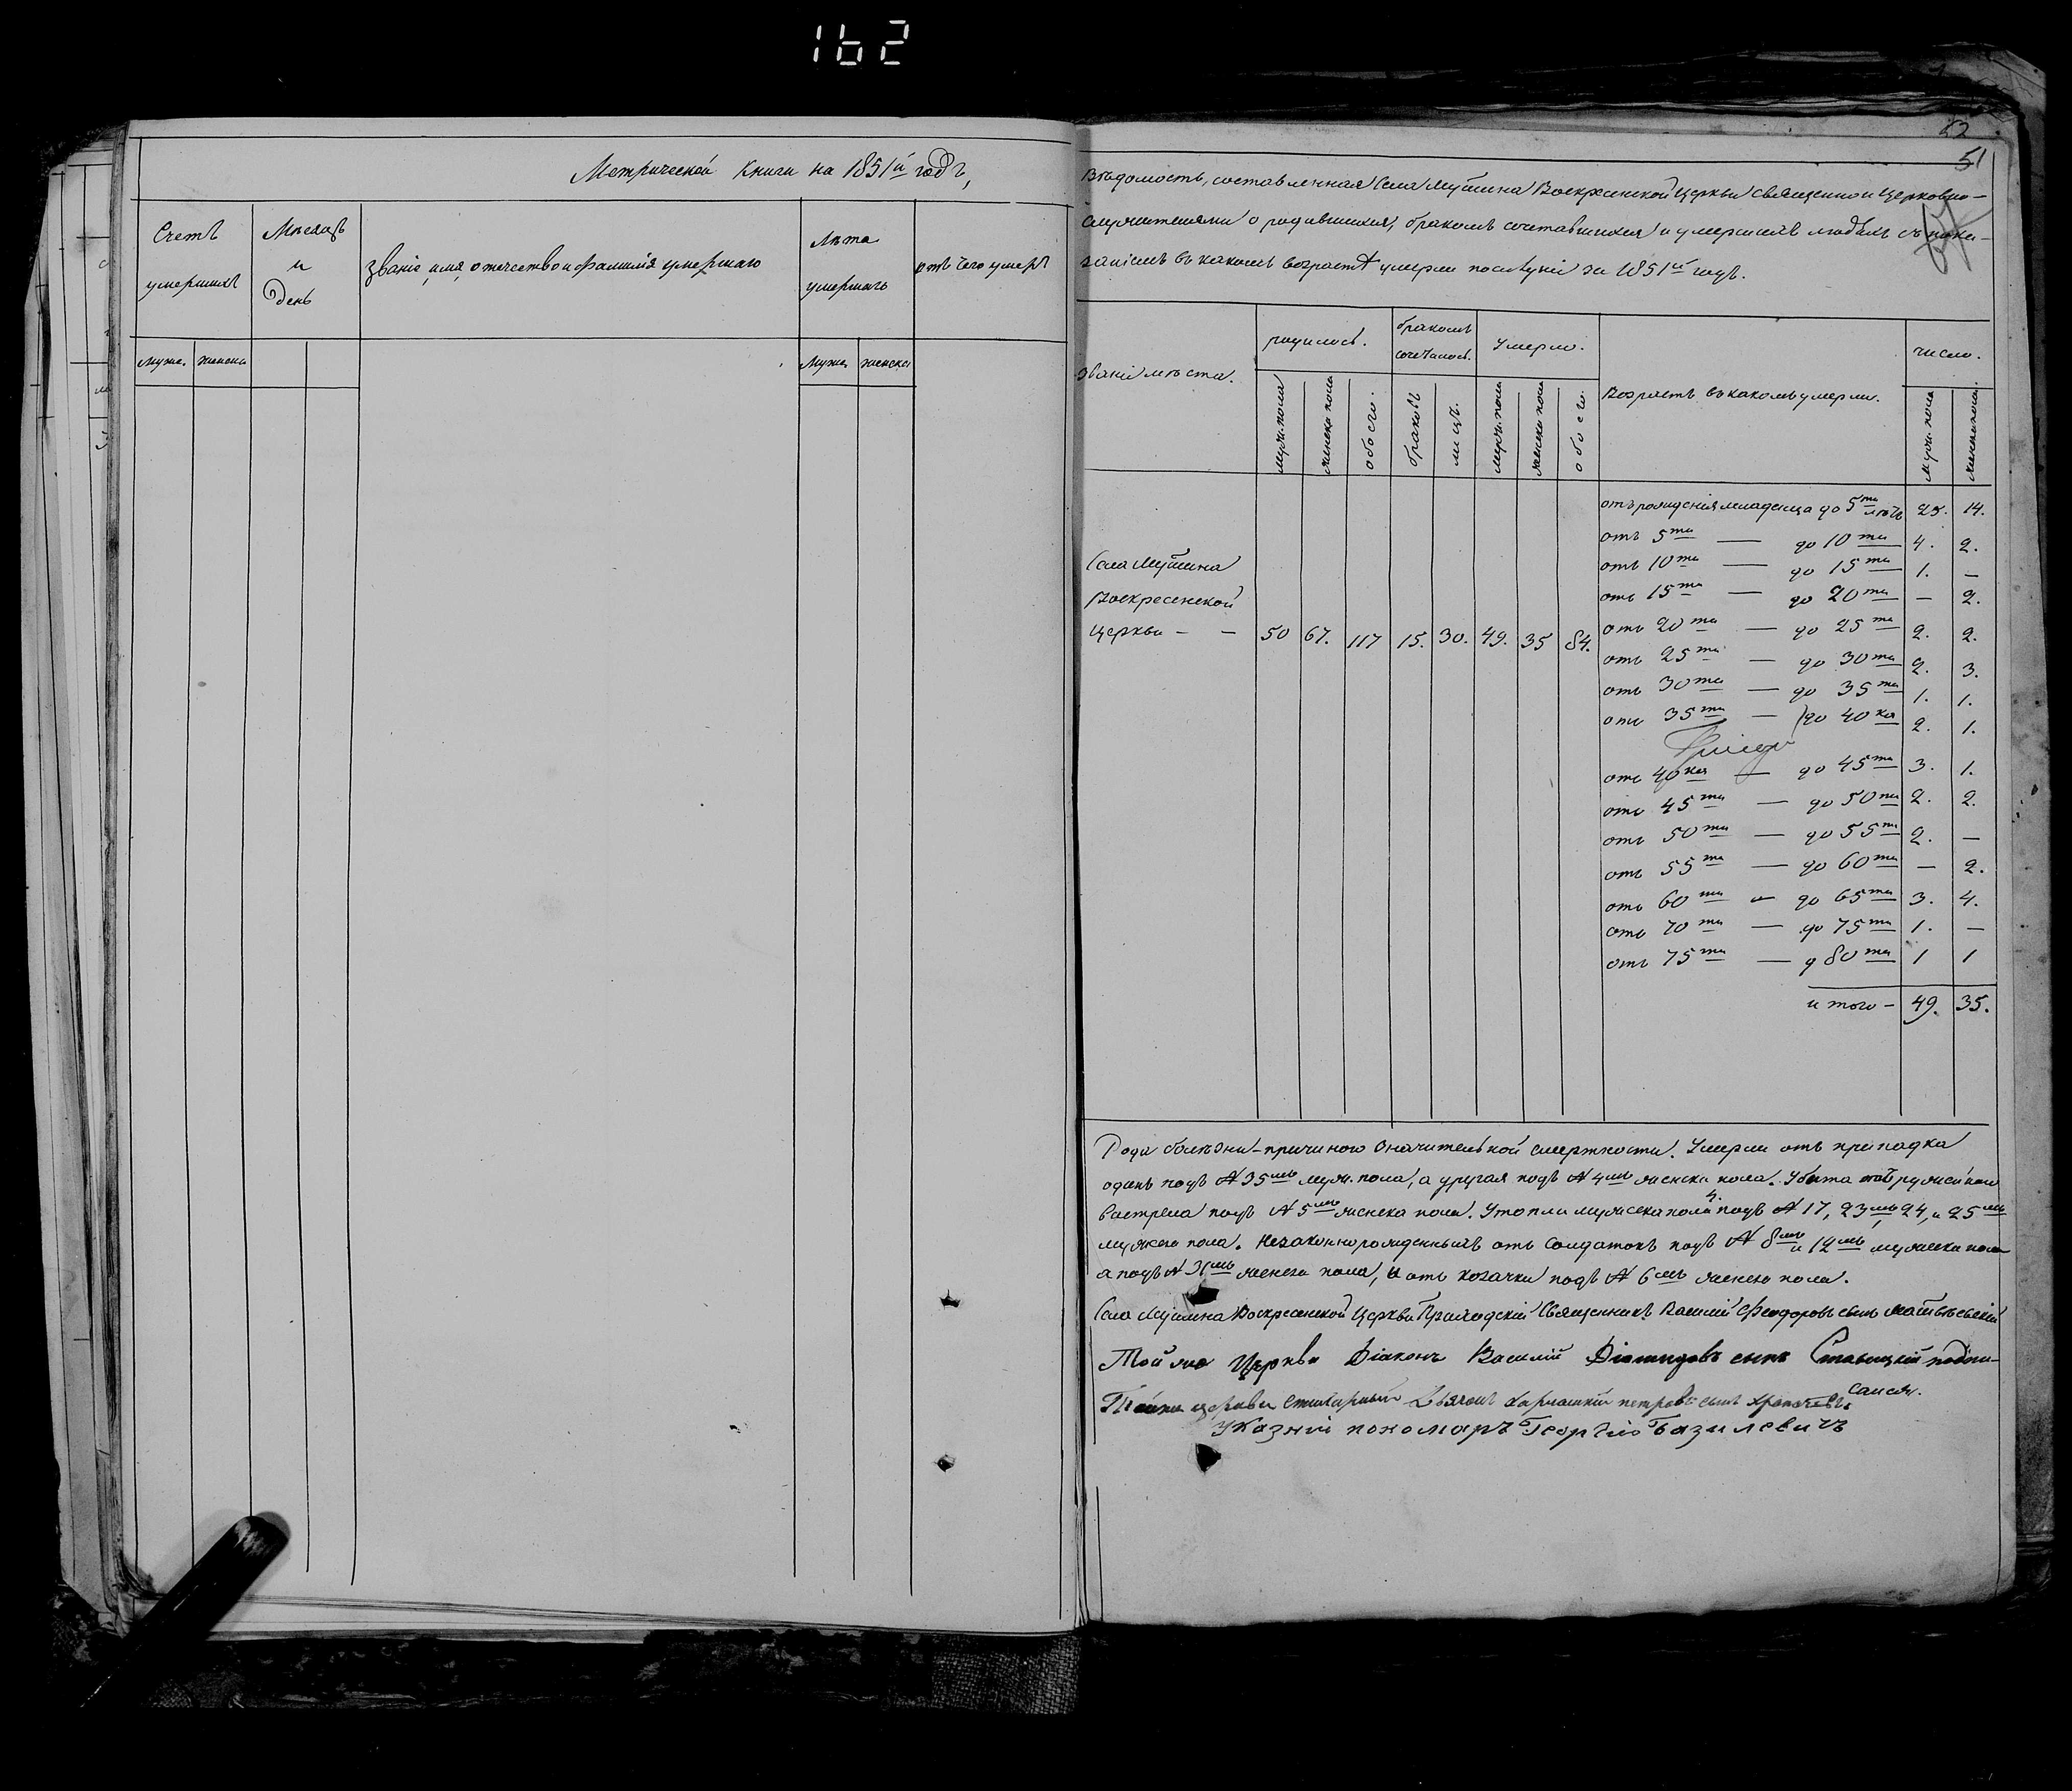 162
Метрической Книги на 1851й годъ,
Счетъ умершихъ
Мѣсяцъ и День
званіе, имя, отечество и фамилія умершаго
Лѣта умершаго
отъ чего умеръ
Мужс. женска
Мужс. женска
52
51
Вѣдомость, составленная Села Мутина Воскресенской Церкви священно и церковно-
служителями о родившихся, бракомъ сочетавшихся и умершихъ людяхъ съ пока-
заніемъ въ какомъ возрастѣ умерли послѣдніе за 1851й годъ.
званіе мѣста.
родилось.
бракомъ сочеталось.
умерло.
Возрастъ въ какомъ умерли.
число.
муж. пола
женска пола
обоего.
браковъ
лицъ.
муж. пола
женска пола
обоего.
муж. пола
женска пола
Села Мутина
Воскресенской
Церкви – – 50 67. 117 15. 30. 49. 35 84.
отъ рожденія младенца до 5ти лѣтъ 25. 14.
отъ 5ти — до 10ти 4. 2.
отъ 10ти — до 15ти 1. —
отъ 15ти — до 20ти — 2.
отъ 20ти — до 25ти 2. 2.
отъ 25ти — до 30ти 2. 3.
отъ 30ти — до 35ти 1. 1.
отъ 35ти — до 40ка 2. 1.
отъ 40ка — до 45ти 3. 1.
отъ 45ти — до 50ти 2. 2.
отъ 50ти — до 55ти 2. —
отъ 55ти — до 60ти — 2.
отъ 60ти — до 65ти 3. 4.
отъ 70ти — до 75ти 1. —
отъ 75ти — д 80ти 1 1
итого – 49. 35.
Рода болѣзни – причиною значительной смертности. Умерли отъ припадка
одинъ подъ № 35мъ муж. пола, а другая подъ № 4мъ женска пола. Убита отъ ружейнаго
выстрела подъ № 5мъ женска пола. Утопли мужска пола 4. подъ № 17, 23мъ, 24, и 25мъ
мужска пола. Незаконнорожденныхъ отъ солдатокъ подъ № 8мъ и 12мъ мужска пола
а подъ № 31мъ женска пола, и отъ козачки подъ № 6мъ женска пола.
Села Мутина Воскресенской Церкви Приходскій Священникъ Василій Феодоровъ сынъ Матвѣевскій
Той же Церкви Діаконъ Василій Діомидовъ сынъ Ставицкій подпи-
сался.
Тойже церкви стихарный Дьячокъ петровъ сынъ
Указній пономаръ Георгій Базилевичъ